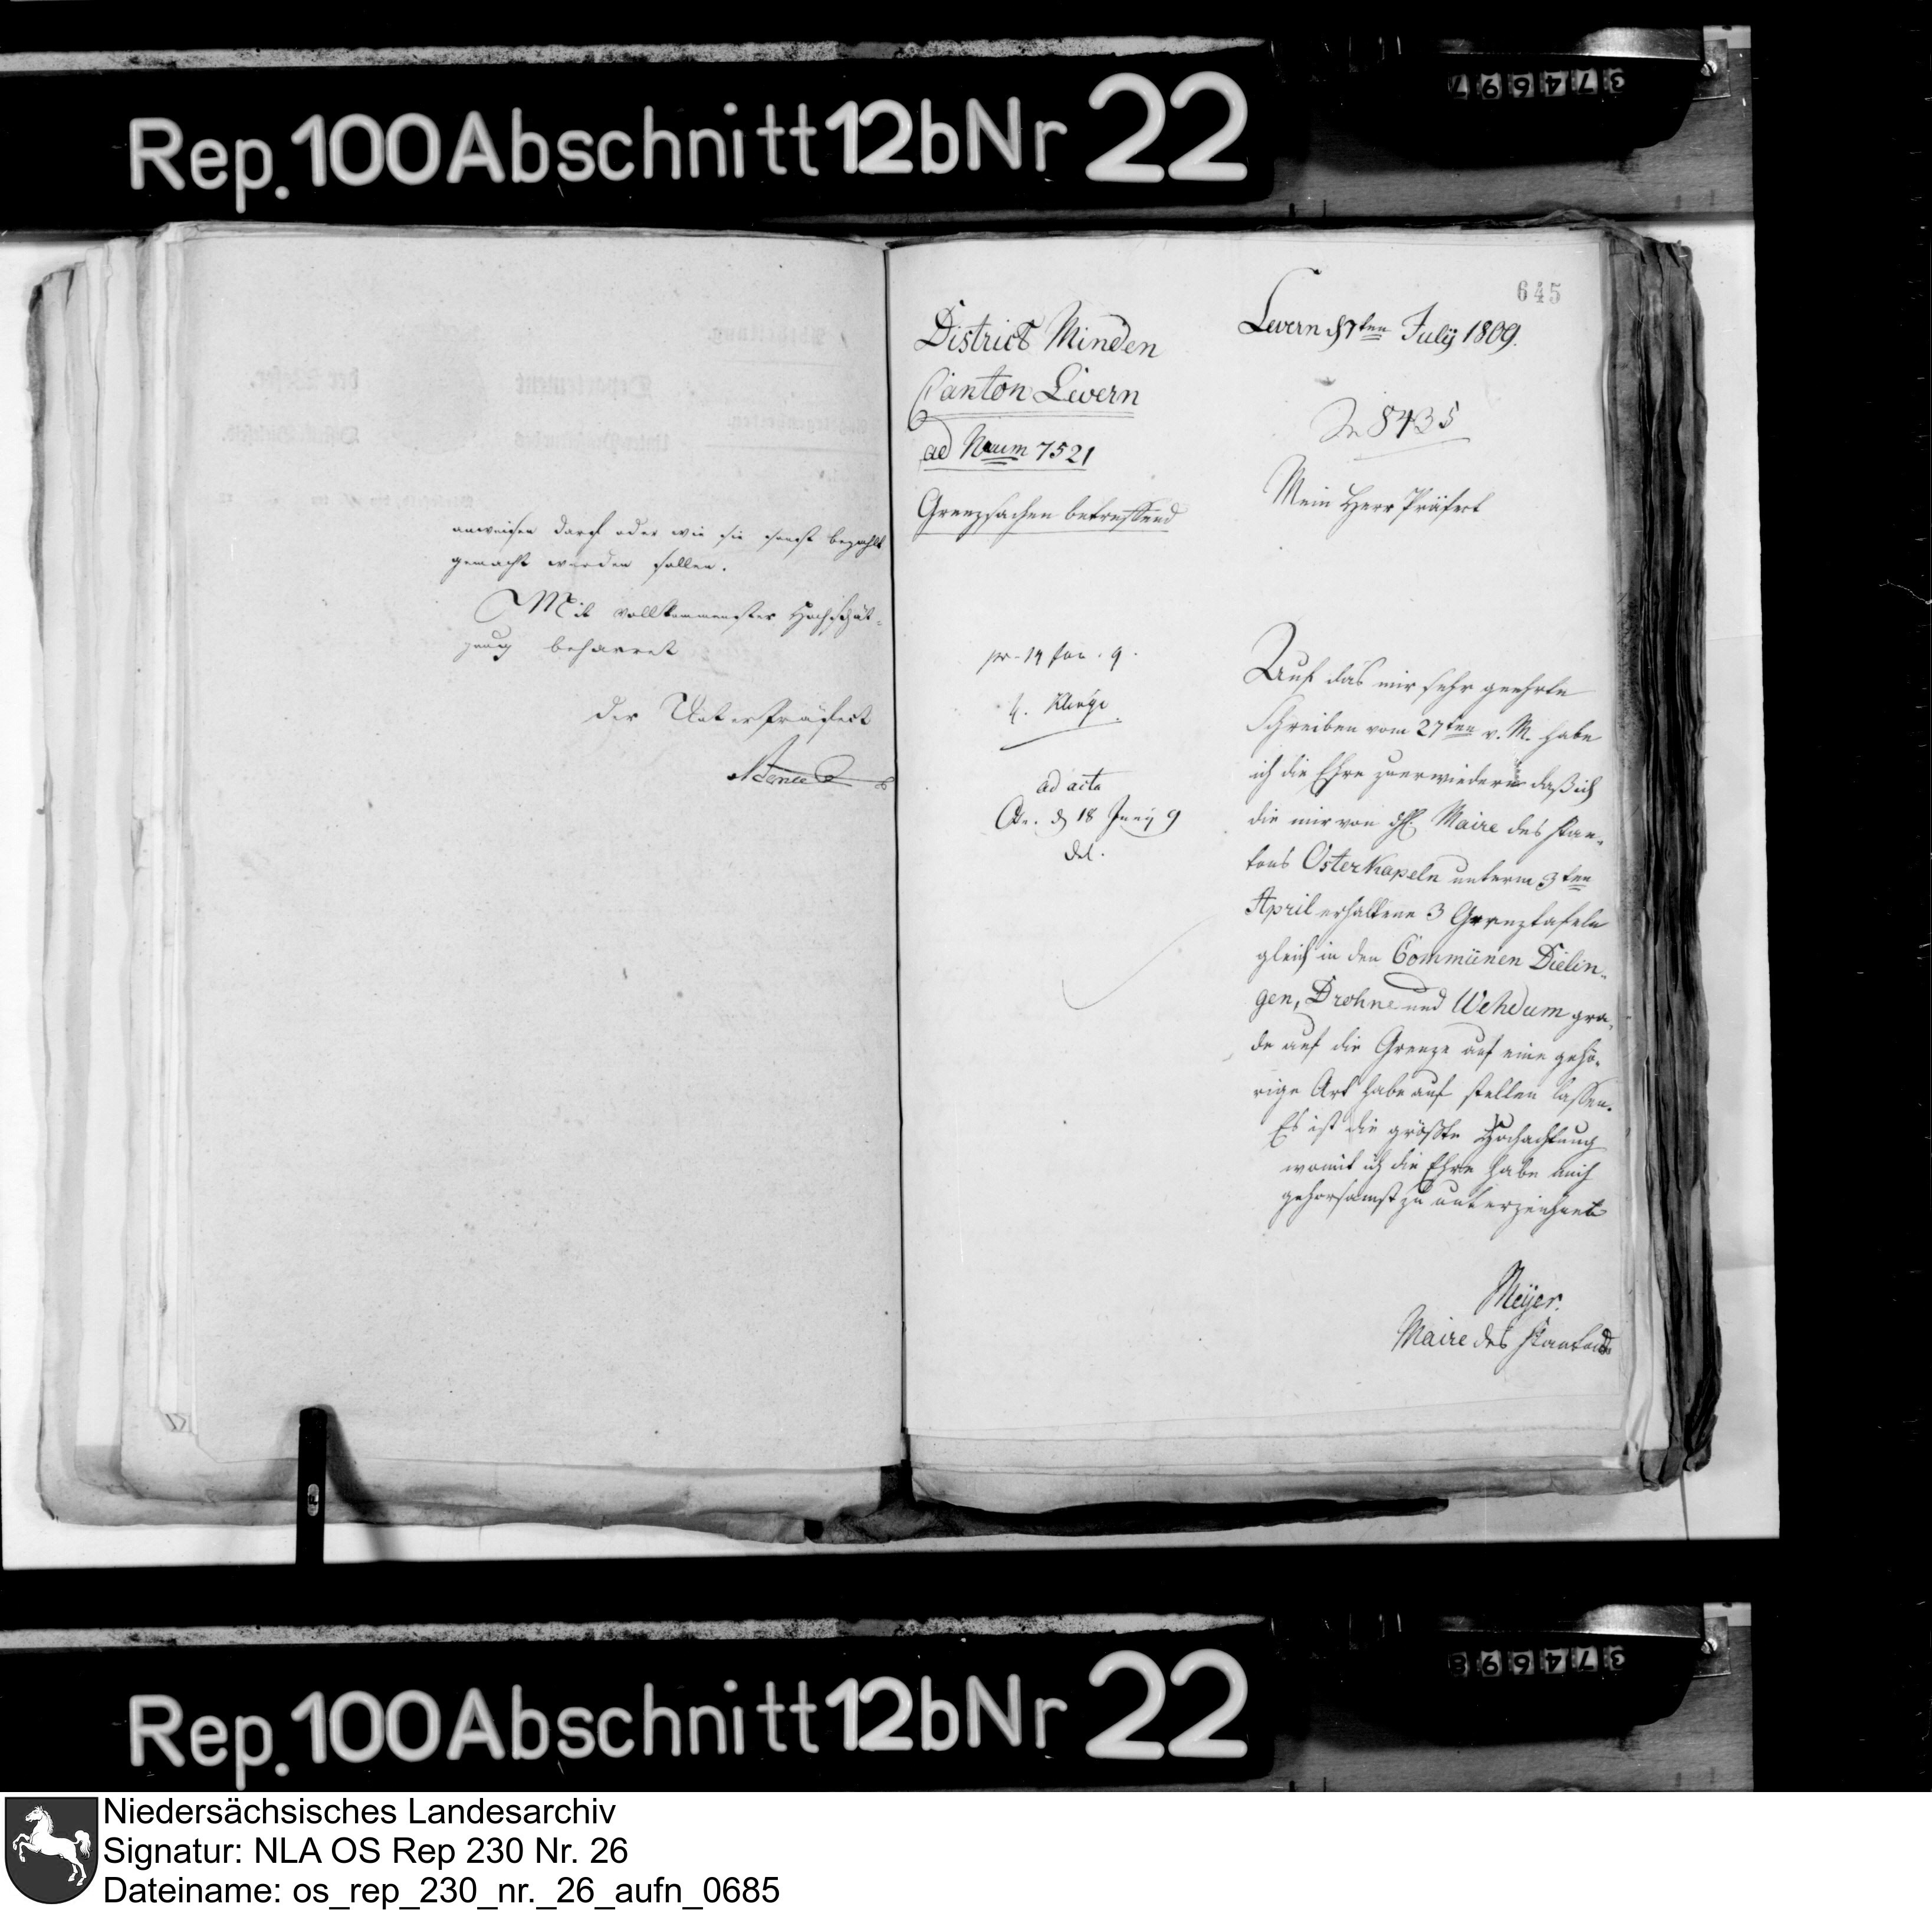 Rep. 100 Abschnitt 12b Nr 22
374697
anweisen darf oder wie sie sonst bezahlt
gemacht werden sollen.
Mit vollkommenster Hochschät-
zung beharret
Der Unterpräfect
645
District Minden
Canton Levern
ad Num 7521
Grenzsachen betreffend
Levern d 7ten July 1809.
8435
Mein Herr Präfect
ad acta
d 18 July 9
Auf das mir sehr geehrte
Schreiben vom 27ten v. M. habe
ich die Ehre zu erwiedern daß ich
die mir von dH. Maire des Kan-
tons Osterkapeln unterm 3ten
April erhaltene 3 Grenztafeln
gleich in den Communen Dielin-
gen, Drohne und Wehdum gra-
de auf die Grenze auf eine gehö-
rige Art habe auf stellen lassen.
Es ist die größte Hochachtung
womit ich die Ehre habe mich
gehorsamst zu unterzeichnen
Meyer.
Maire des Kantons
Rep. 100 Abschnitt 12b Nr 22
374698
Niedersächsisches Landesarchiv
Signatur: NLA OS Rep 230 Nr. 26
Dateiname: os_rep_230_nr._26_aufn_0685